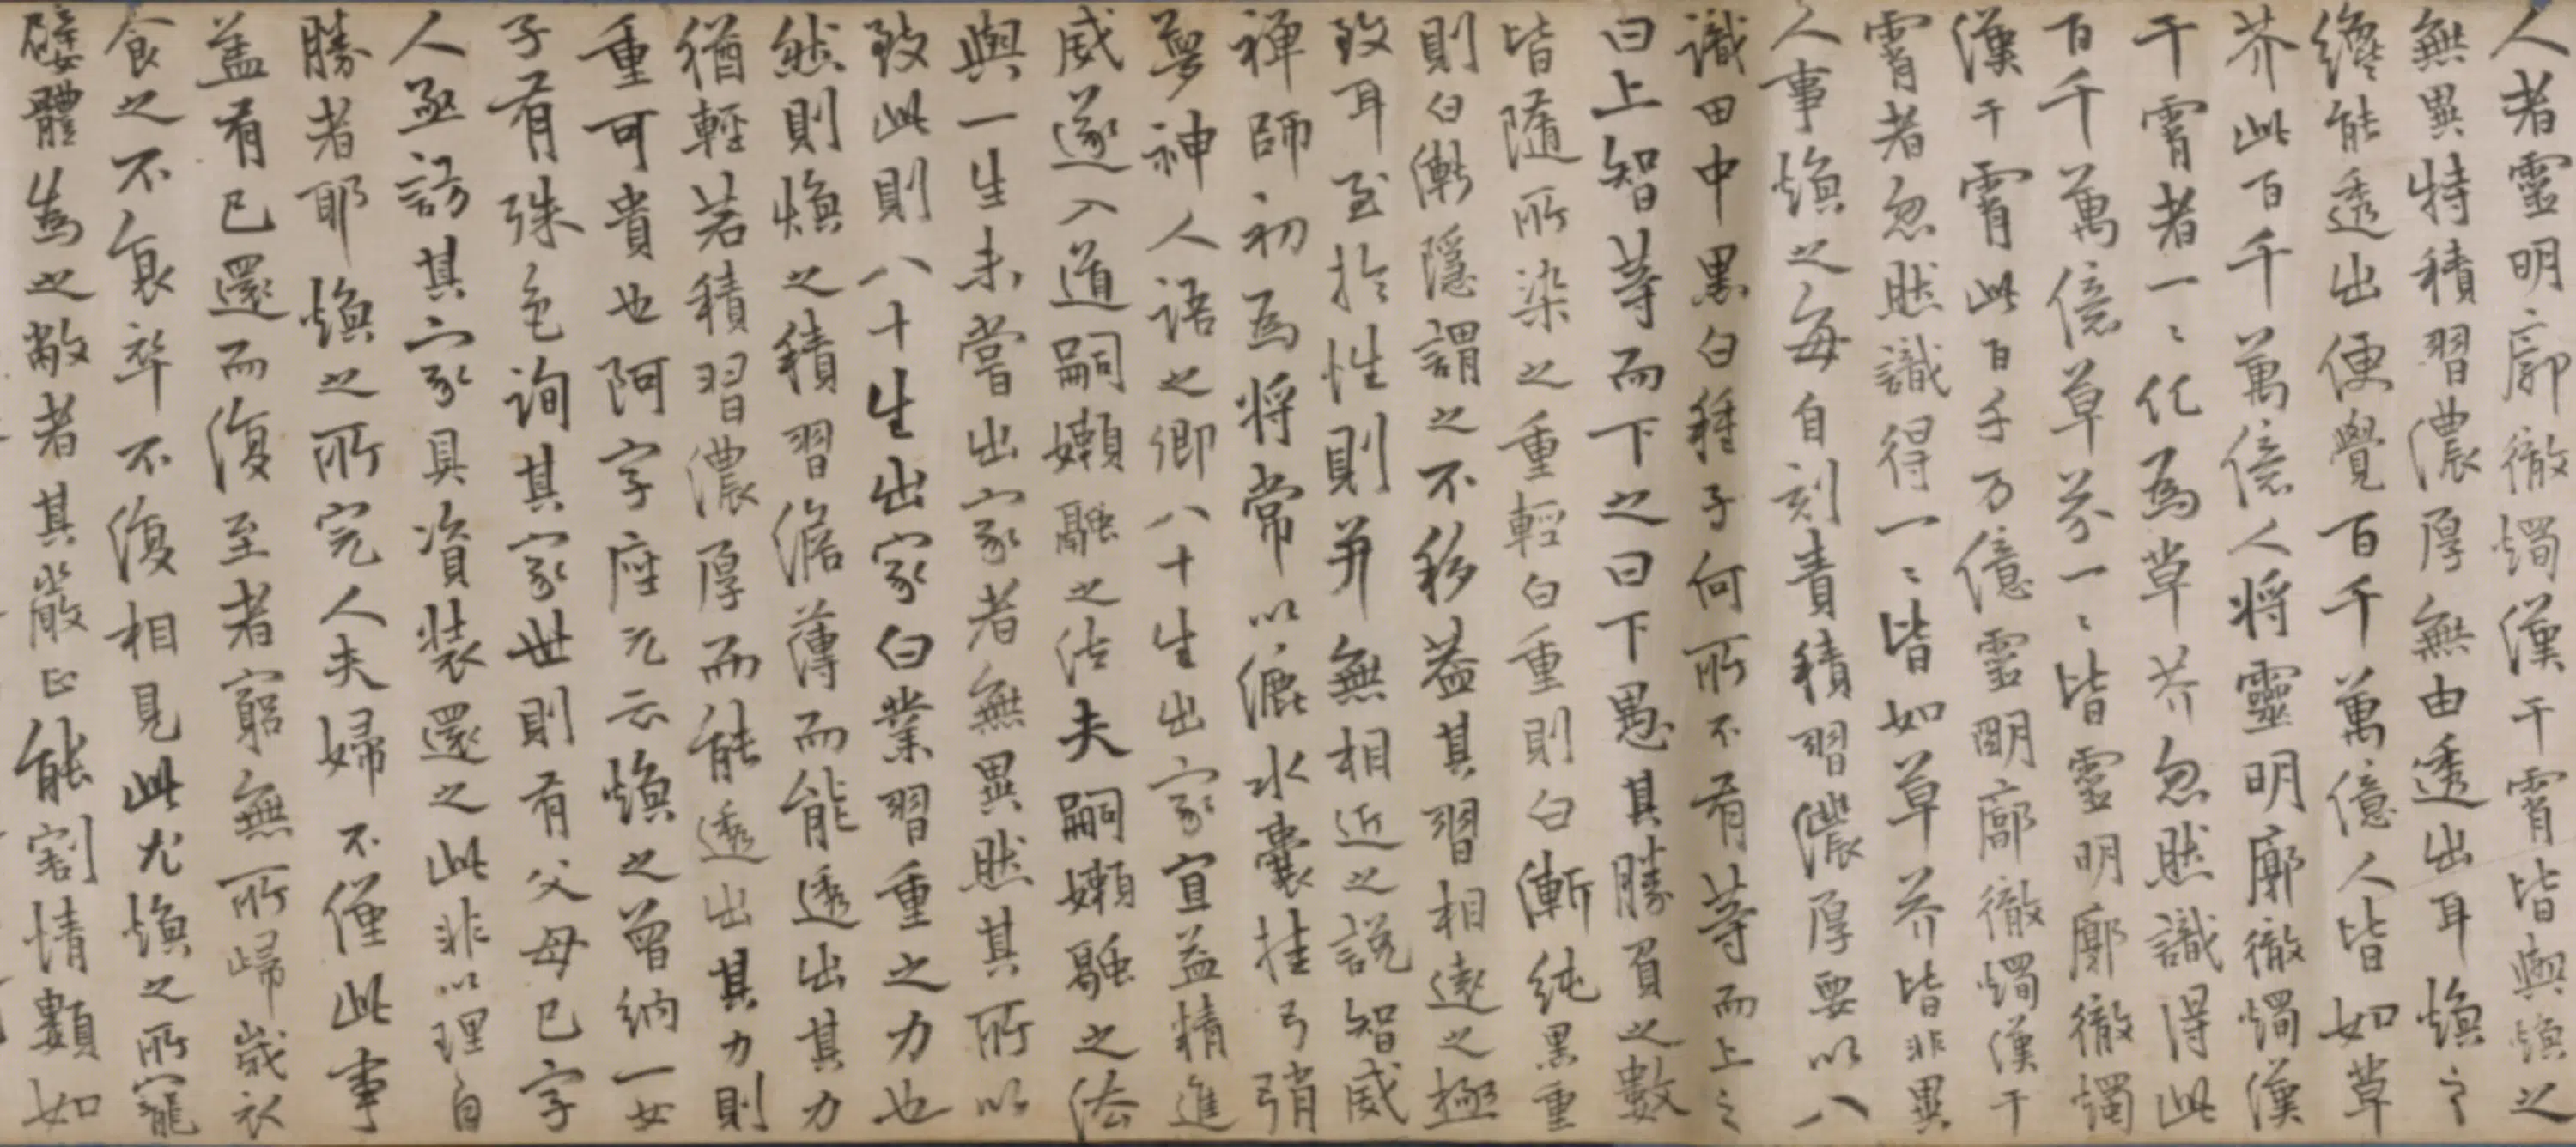 人者靈明廓徹燭漢干霄皆與煥之
無異特積習濃厚無由透出耳煥之
纔能透出便覺百千萬億人皆如草
芥此百千萬億人將靈明廓徹燭漢
干霄者一〻化為草芥忽然識得此
百千萬億草芥一〻皆靈明廓徹燭
漢干霄此百千万億靈明廓徹燭漢干
霄者忽然識得一〻皆如草芥皆非異
人事煥之每自刻責積習濃厚要以八
識田中黑白種子何所不有等而上之
曰上智等而下之曰下愚其勝負之數
皆隨所染之重輕白重則白漸純黑重
則白漸隱謂之不移蓋其習相遠之極
致耳至於性則并無相近之說智威
禪師初為將常以漉水囊挂弓弰
夢神人語之卿八十生出家宜益精進
威遂入道嗣嬾融之法夫嗣嬾融之法
與一生未嘗出家者無異然其所以
致此則八十生出家白業習重之力也
然則煥之積習澹薄而能透出其力
猶輕若積習濃厚而能透出其力則
重可貴也阿字座元云煥之曾納一女
子有殊色詢其家世則有父母已字
人亟訪其家具資裝還之此非以理自
勝者耶煥之所完人夫婦不僅此事
蓋有已還而復至者窮無所歸歲衣
食之不衰卒不復相見此尤煥之所寵
嬖體為之敝者其嚴正能割情類如